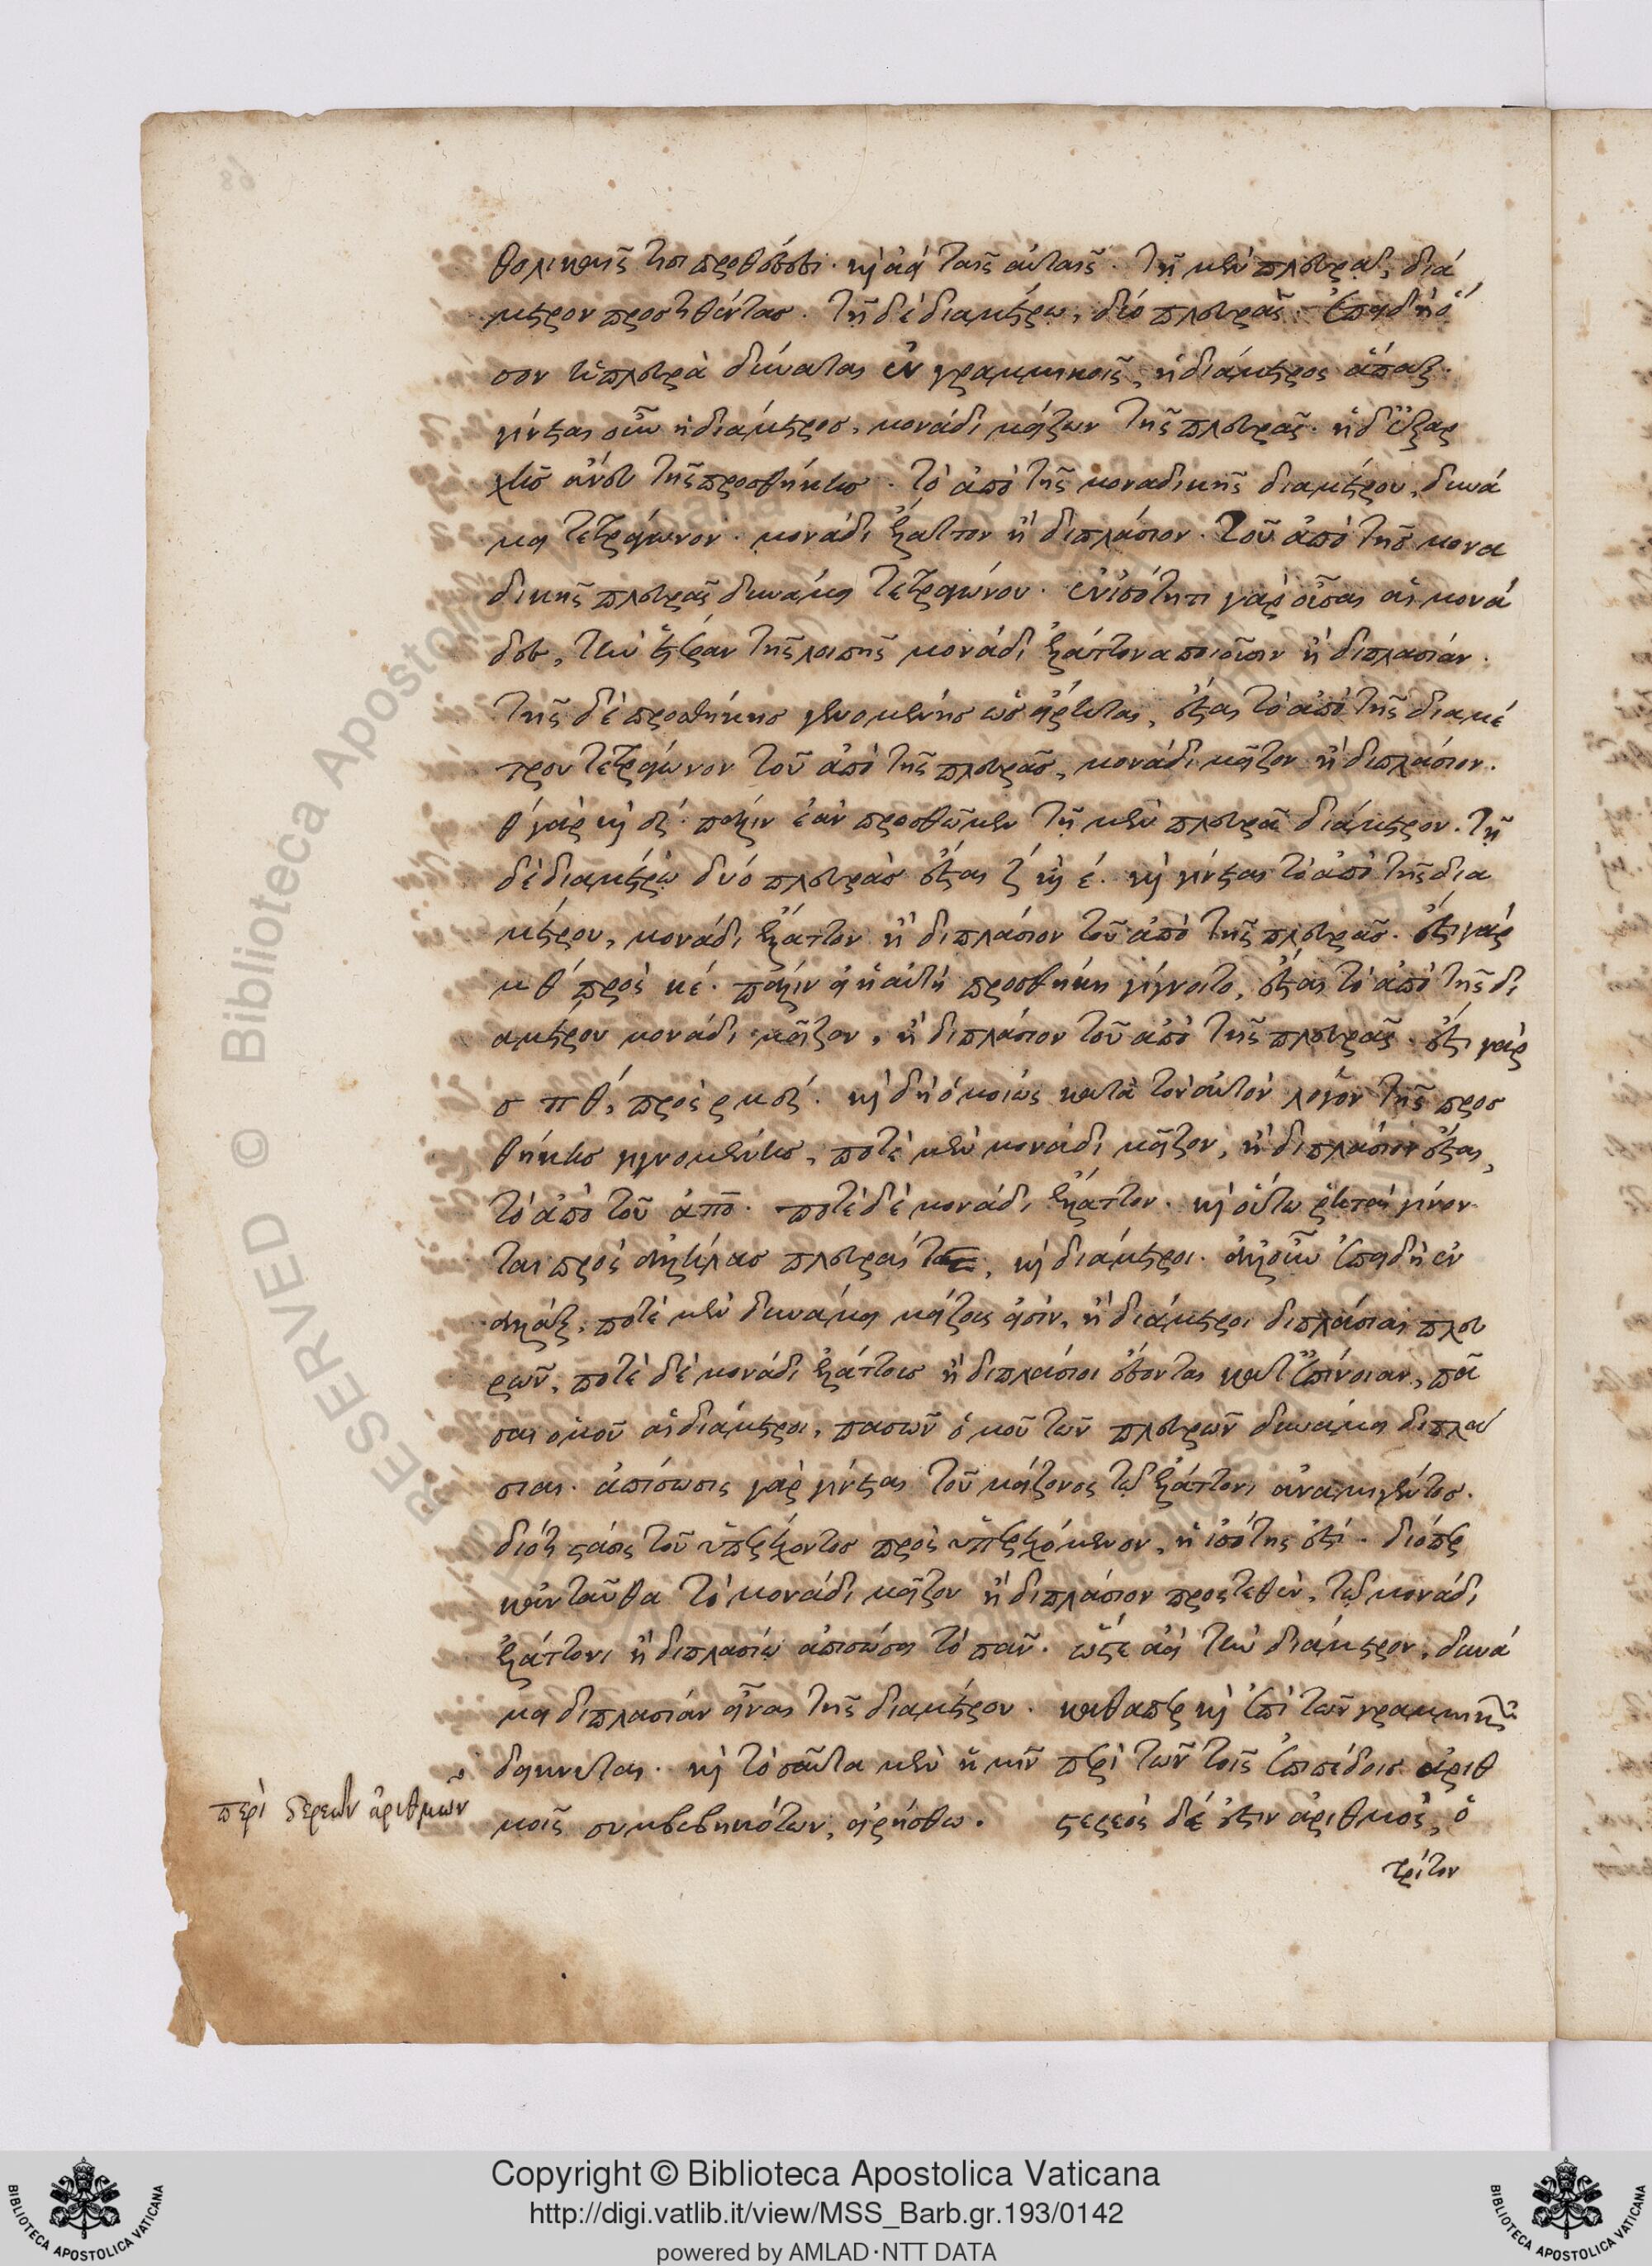 θολικαῖς τισι προσθέσεσι· καὶ ἀεὶ ταῖς αὐταῖς· τῇ μὲν πλευρᾷ, διά
μετρον προστιθέντας. τῇ δὲ διαμέτρῳ, δύο πλευράς· ἐπειδὴ ὅ
σον ἡ πλευρὰ δύναται ἐν γραμμικοῖς, ἡ διάμετρος ἅπαξ.
γίνεται οὖν ἡ διάμετρος, μονάδι μείζων τῆς πλευρᾶς· ἡ δ' ἐξαρ
χῆς ἄνευ τῆς προσθήκης. τὸ ἀπὸ τῆς μοναδικῆς διαμέτρου, δυνά
μει τετράγωνον· μονάδι ἔλαττον ἢ διπλάσιον. τοῦ ἀπὸ τῆς μονα
δικῆς πλευρᾶς δυνάμει τετραγώνου· ἐν ἰσότητι γὰρ οὖσαι αἱ μονά
δες, τὴν ἑτέραν τῆς λοιπῆς μονάδι ἐλάττονα ποιοῦσιν ἢ διπλασίαν.
τῆς δὲ προσθήκης γενομένης ὡς εἴρηται, ἔσται τὸ ἀπὸ τῆς διαμέ
τρου τετράγωνον τοῦ ἀπὸ τῆς πλευρᾶς, μονάδι μεῖζον ἢ διπλάσιον.
θ γὰρ καὶ δ. πάλιν ἐὰν προσθῶμεν τῇ μὲν πλευρᾷ διάμετρον. τῇ
δὲ διαμέτρῳ δύο πλευρὰς ἔσται ζ καὶ έ. καὶ γίνεται τὸ ἀπὸ τῆς δια
μέτρου, μονάδι ἔλαττον ἢ διπλάσιον τοῦ ἀπὸ τῆς πλευρᾶς. ἔστι γὰρ
μθ πρὸς κέ. πάλιν εἰ ἡ αὐτὴ προσθήκη γίγνοιτο, ἔσται τὸ ἀπὸ τῆς δι
αμέτρου μονάδι μεῖζον, ἢ διπλάσιον τοῦ ἀπὸ τῆς πλευρᾶς. ἔστι γὰρ
σπθ, πρὸς ρμδ. καὶ δὴ ὁμοίως κατὰ τὸν αὐτὸν λόγον τῆς προσ
θήκης γιγνομένης, ποτὲ μὲν μονάδι μεῖζον, ἢ διπλάσιον ἔσται,
τὸ ἀπὸ τοῦ ἀπὸ. ποτὲ δὲ μονάδι ἔλαττον. καὶ οὕτω ῥηταὶ γίνον
ται πρὸς ἀλλήλας πλευραί τε, καὶ διάμετροι. ἀλλ' οὖν ἐπειδὴ ἐν
ἀλλὰξ, ποτὲ μὲν δυνάμει μείζους εἰσὶν, ἢ διάμετροι διπλάσιαι πλευ
ρῶν, ποτὲ δὲ μονάδι ἐλάττους ἢ διπλάσιοι ἔσονται κατ' ἐπίνοιαν, πᾶ
σαι ὁμοῦ αἱ διάμετροι, πασῶν ὁμοῦ τῶν πλευρῶν δυνάμει διπλά
σιαι. ἀπίσωσις γὰρ γίνεται τοῦ μείζονος τῷ ἐλάττονι ἀναμιγέντος.
διότι στάσις τοῦ ὑπερέχοντος πρὸς ὑπερεχόμενον, ἡ ἰσότης ἐστί. διόπερ
κἀνταῦθα τὸ μονάδι μεῖζον ἢ διπλάσιον προστεθὲν, τῷ μονάδι
ἐλάττονι ἢ διπλασίῳ ἀπισώσει τὸ πᾶν. ὥστε ἀεὶ τὴν διάμετρον, δυνά
μει διπλασίαν εἶναι τῆς διαμέτρου. καθάπερ καὶ ἐπὶ τῶν γραμμικῶν
δείκνυται. καὶ τοσαῦτα μὲν ἡμῖν περὶ τῶν τοῖς ἐπιπέδοις ἀριθ
περὶ στερεῶν ἀριθμῶν
μοῖς συμβεβηκότων, εἰρήσθω. στερεὸς δέ ἐστιν ἀριθμὸς, ὁ
τρίτον
Copyright © Biblioteca Apostolica Vaticana
http://digi.vatlib.it/view/MSS_Barb.gr.193/0142
powered by AMLAD·NTT DATA